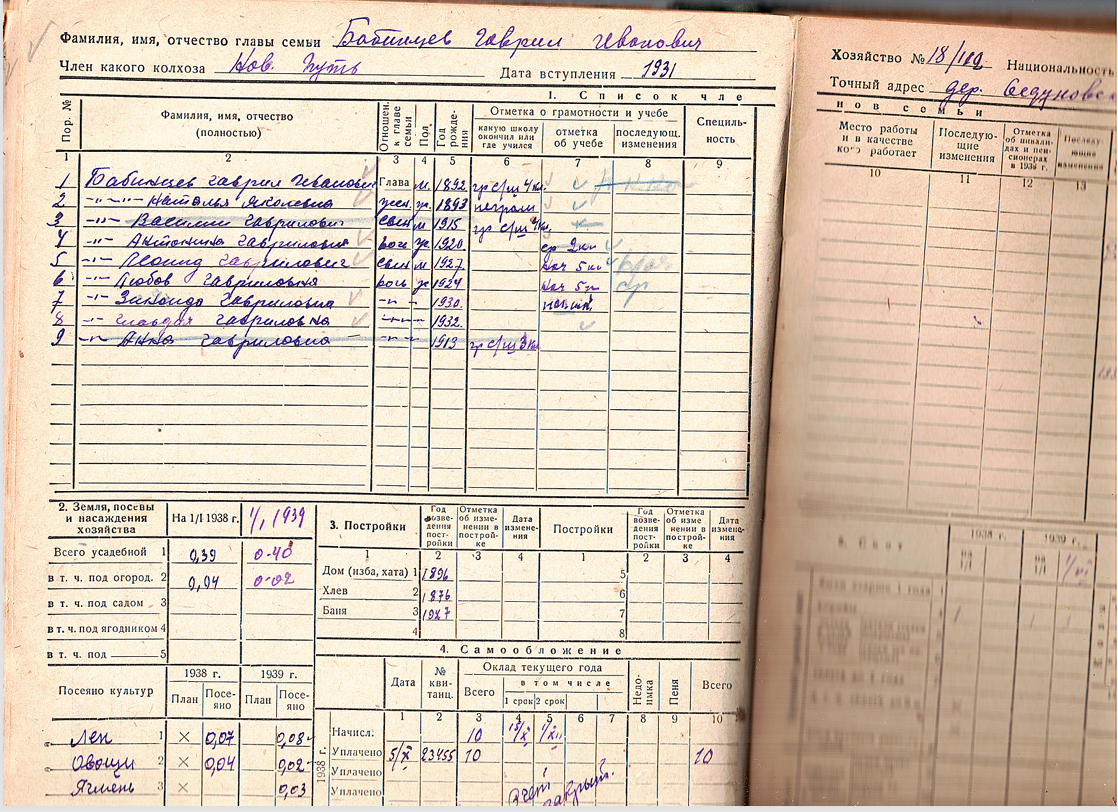 Фамилия, имя, отчество главы семьи Бабинцев Гаврил Иванович
Член какого колхоза Нов. Путь Дата вступления 1931
1. Список чле
Пор. № Фамилия, имя, отчество (полностью) Отношен. к главе семьи Пол Год рождения Отметка о грамотности и учебе Специльность
какую школу окончил или где учился отметка об учебе последующ. изменения
1 2 3 4 5 6 7 8 9
1 Бабинцев Гаврил Иванович Глава м. 1892 гр с/ш 4 кл.
2 -"-"- Наталья Яковлевна жен. ж. 1893 неграм
3 -"- Василий Гаврилович сын м 1915 гр с/ш 4 кл.
4 -"- Антонина Гавриловна дочь ж. 1920 ср 2 кл
5 -"- Леонид Гаврилович сын м 1927 нач 5 кл
6 -"- Любовь Гавриловна дочь ж 1924 нач 5
7 -"- Зинаида Гавриловна -"- 1930.
8 -"- Клавдия Гавриловна 1932.
9 -"- Анна Гавриловна -"- 1913 гр с/ш 3 кл
2. Земля, посевы и насаждения хозяйства На 1/I 1938 г. 1/I 1939
Всего усадебной 1 0,39 0-40
в т. ч. под огород. 2 0,04 0-02
в т. ч. под садом 3
в т. ч. под ягодником 4
в т. ч. под 5
Посеяно культур 1938 г. 1939 г.
План Посеяно План Посеяно
Лен 1 × 0,07 0,08
Овощи 2 × 0,04 0,02
Ячмень 3 × 0,03
3. Постройки Год возведения постройки Отметка об изменении в постройке Дата изменения Постройки Год возведения постройки Отметка об изменении в постройке Дата изменения
1 2 3 4 1 2 3 4
Дом (изба, хата) 1 1896 5
Хлев 2 1876 6
Баня 3 1927 7
4 8
4. Самообложение
Дата № квитанц. Оклад текущего года Недоимка Пеня Всего
Всего в том числе
1 срок 2 срок
1 2 3 4 5 6 7 8 9 10
1938 г.
Начисл. 10 15/X 1/XII
Уплачено 5/X 23455 10 10
Уплачено
Уплачено закрыт.
Хозяйство № 18/102 Национальность
Точный адрес дер. Седуновск
нов семьи
Место работы и в качестве кого работает Последующие изменения Отметка об инвалидах и пенсионерах в 1938 г. Последующие изменения
10 11 12 13
1938 г. 1939 г.
на 1/I на 1/I 1/VI